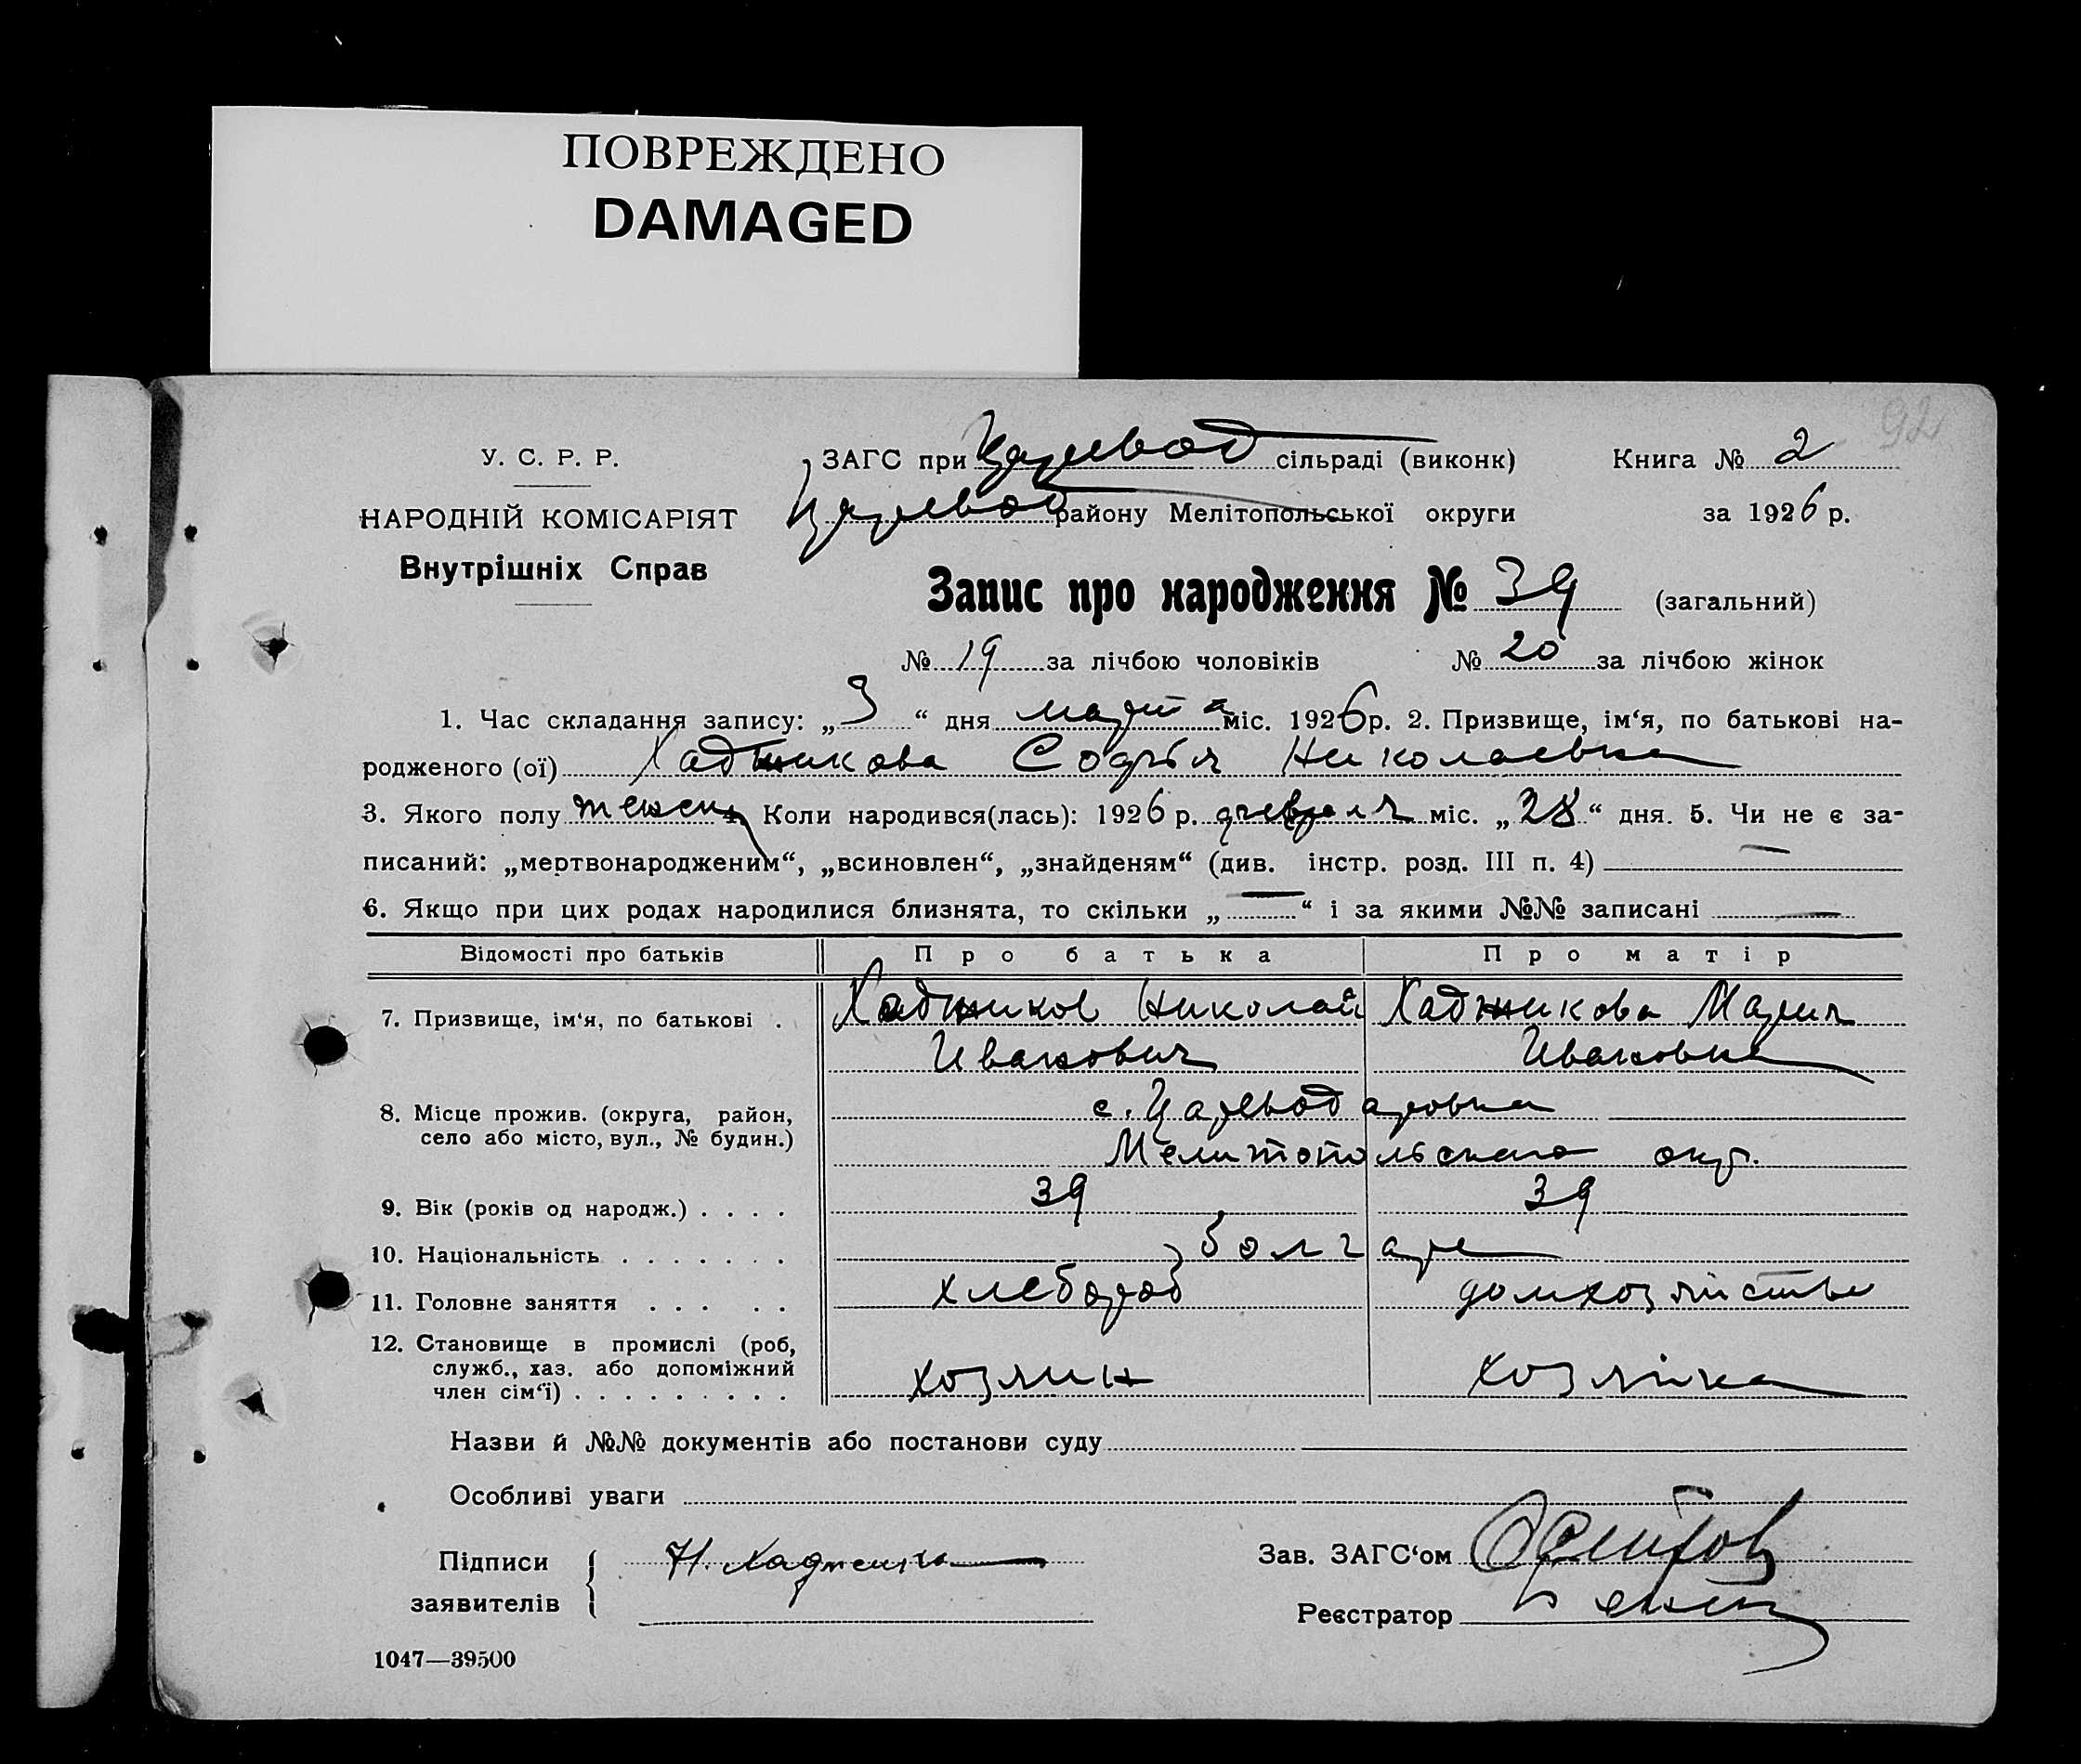 ПОВРЕЖДЕНО
DAMAGED
92
У. С. Р. Р.
НАРОДНІЙ КОМІСАРІЯТ
Внутрішніх Справ
ЗАГС при Царевод сільраді (виконк)
Книга № 2
Царевод району Мелітопольської округи
за 1926 р.
Запис про народження № 39 (загальний)
№ 19 за лічбою чоловіків № 20 за лічбою жінок
1. Час складання запису: „3“ дня марта міс. 1926 р. 2. Призвище, ім‘я, по батькові на-
родженого (ої) Хаджикова Софья Николаевна
3. Якого полу женск 4. Коли народився(лась): 1926 р. февраля міс. „28“ дня. 5. Чи не є за-
писаний: „мертвонародженим“, „всиновлен“, „знайденям“ (див. інстр. розд. III п. 4) —
6. Якщо при цих родах народилися близнята, то скільки „—“ і за якими №№ записані —
Відомості про батьків Про батька Про матір
7. Призвище, ім‘я, по батькові . Хаджиков Николай Хаджикова Мария
Иванович Ивановна
8. Місце прожив. (округа, район,
село або місто, вул., № будин.)
с. Цареводаровка
Мелитопольского окр.
9. Вік (років од народж.) . . . . 39 39
10. Національність . . . . . . . болгаре
11. Головне заняття . . . . . хлебороб домхозяйство
12. Становище в промислі (роб,
служб., хаз. або допоміжний
член сім‘ї) . . . . . . . . . хозяин хозяйка
Назви й №№ документів або постанови суду
Особливі уваги
Підписи
заявителів
Н. Хаджик
Зав. ЗАГС‘ом
Реєстратор
1047—39500